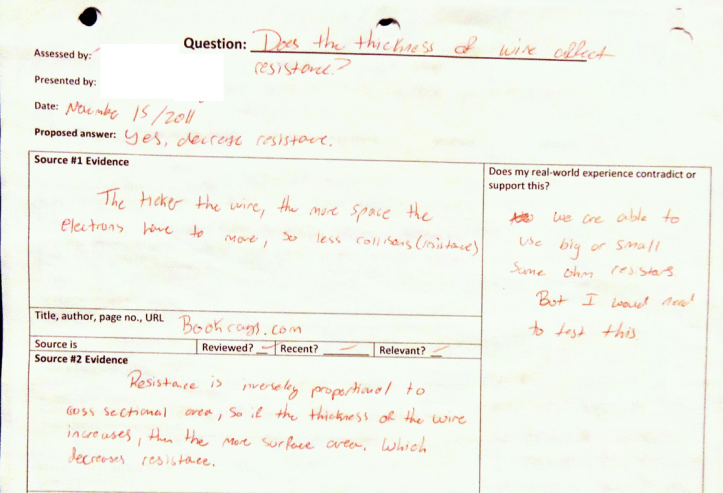 Question: Does the thickness of wire affect
resistance?
Assessed by:
Presented by:
Date: November 15/2011
Proposed answer: Yes, decrease resistance.
Source #1 Evidence
The ticker the wire, the more space the
electrons have to move, so less collisons (resistance)
Does my real-world experience contradict or
support this?
we are able to
use big or small
same ohm resistors
But I would need
to test this
Title, author, page no., URL Bookrags.com
Source is Reviewed? Recent? Relevant?
Source #2 Evidence
Resistance is inversely proportional to
coss sectional area, so if the thickness of the wire
increases, then the more surface area. Which
decreases resistance.